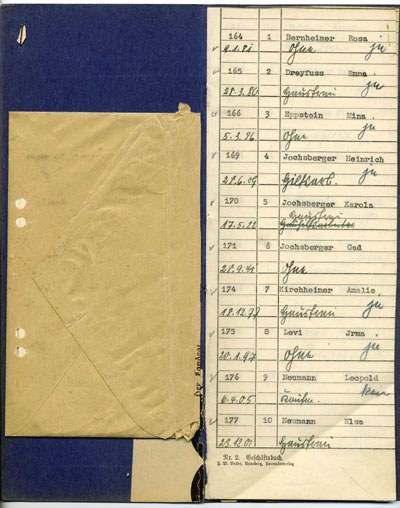 164 1 Bernheimer Rosa
9.1.81 ohne ja
165 2 Dreyfuss Emma
28.3.80 Hausfrau ja
166 3 Eppstein Mina
5.3.76 ohne ja
169 4 Jochsberger Heinrich
28.6.09 Hilfsarb. ja
170 5 Jochsberger Karola
Hausfrau
17.5.22
171 6 Jochsberger Gad
28.9.41 ohne
174 7 Kirchheimer Amalie
18.12.79 Hausfrau ja
175 8 Levi Jrma
20.1.97 ohne ja
176 9 Neumann Leopold
6.4.05 Kaufm.
177 10 Neumann Elsa
23.12.01 Hausfrau
Nr. 2. Geschäftsbuch